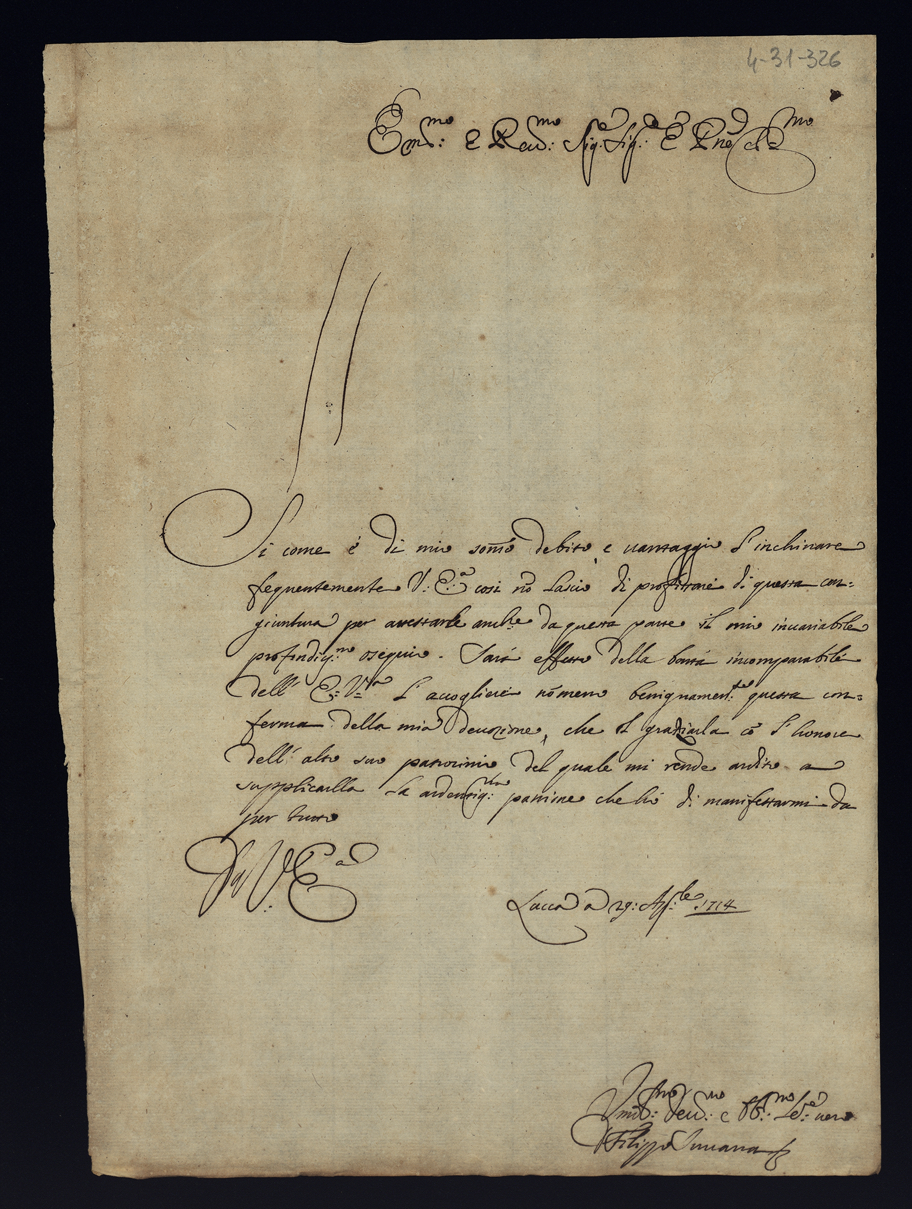 4-31-326
Em.mo: e Reu.mo: Sig.e Sig.e: e Pne
Si come é di mio som̃o debito, e uantaggio l'inchinare
frequentemente V: E:a cosi nõ lascio di profittare di questa con=
giuntura per attestarle anche da questa parte il mio inuariabile
profondiss:mo osequio. Sará effetto della bontá incomparabile
dell' E: V:a l'accogliere nõ meno benignamen:te questa con=
ferma della mia deuozione, che il graziarla cõ l'honore
dell' alto suo patrocinio del quale mi rende ardito a
supplicarlla la ardentiss: passione che hó di manifestarmi da
per tutto
Di V: E:a
Lucca a 29: Ap:le 1714
Um:mo: Deu:mo e Ob:mo Se:e uero
Filippo